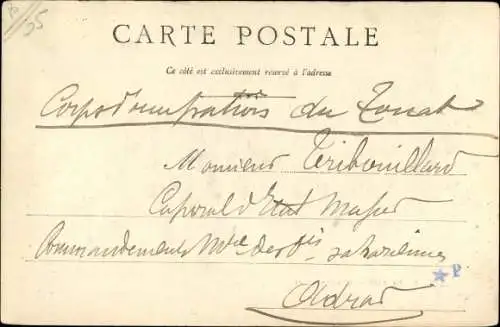 95
CARTE POSTALE
Ce côté est exclusivement réservé à l'adresse
Corps d'occupation du Touat
Monsieur Tribouillard
Caporal d'Etat Major
Commandement Mre des sahariennes
P
Adrar